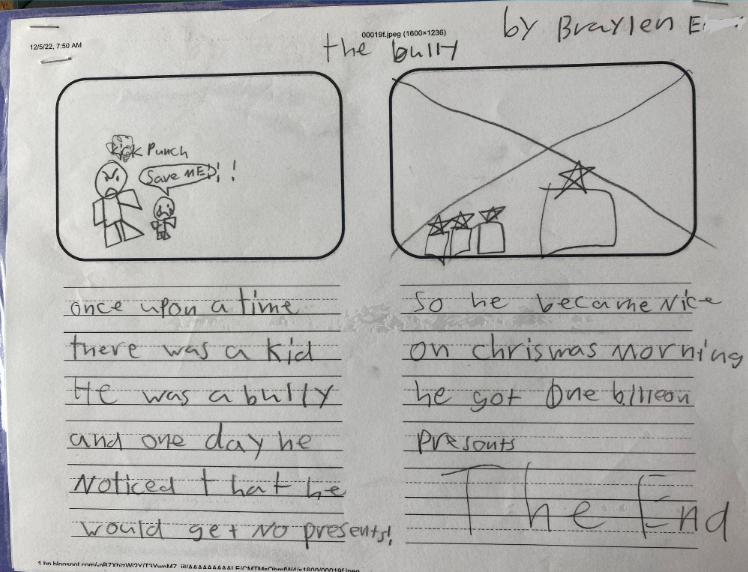 12/5/22, 7:50 AM
00019f.jpeg (1600×1236)
by Braylen
the bully
Kick Punch
Save ME!!
once upon a time
there was a kid
He was a bully
and one day he
Noticed that he
would get No presents!
So he became Nice
on chrismas Morning
he got One billeon
Presonts
The End